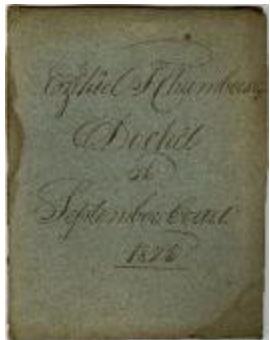 Ezekiel F Chambers
Docket
to
September Court
1826